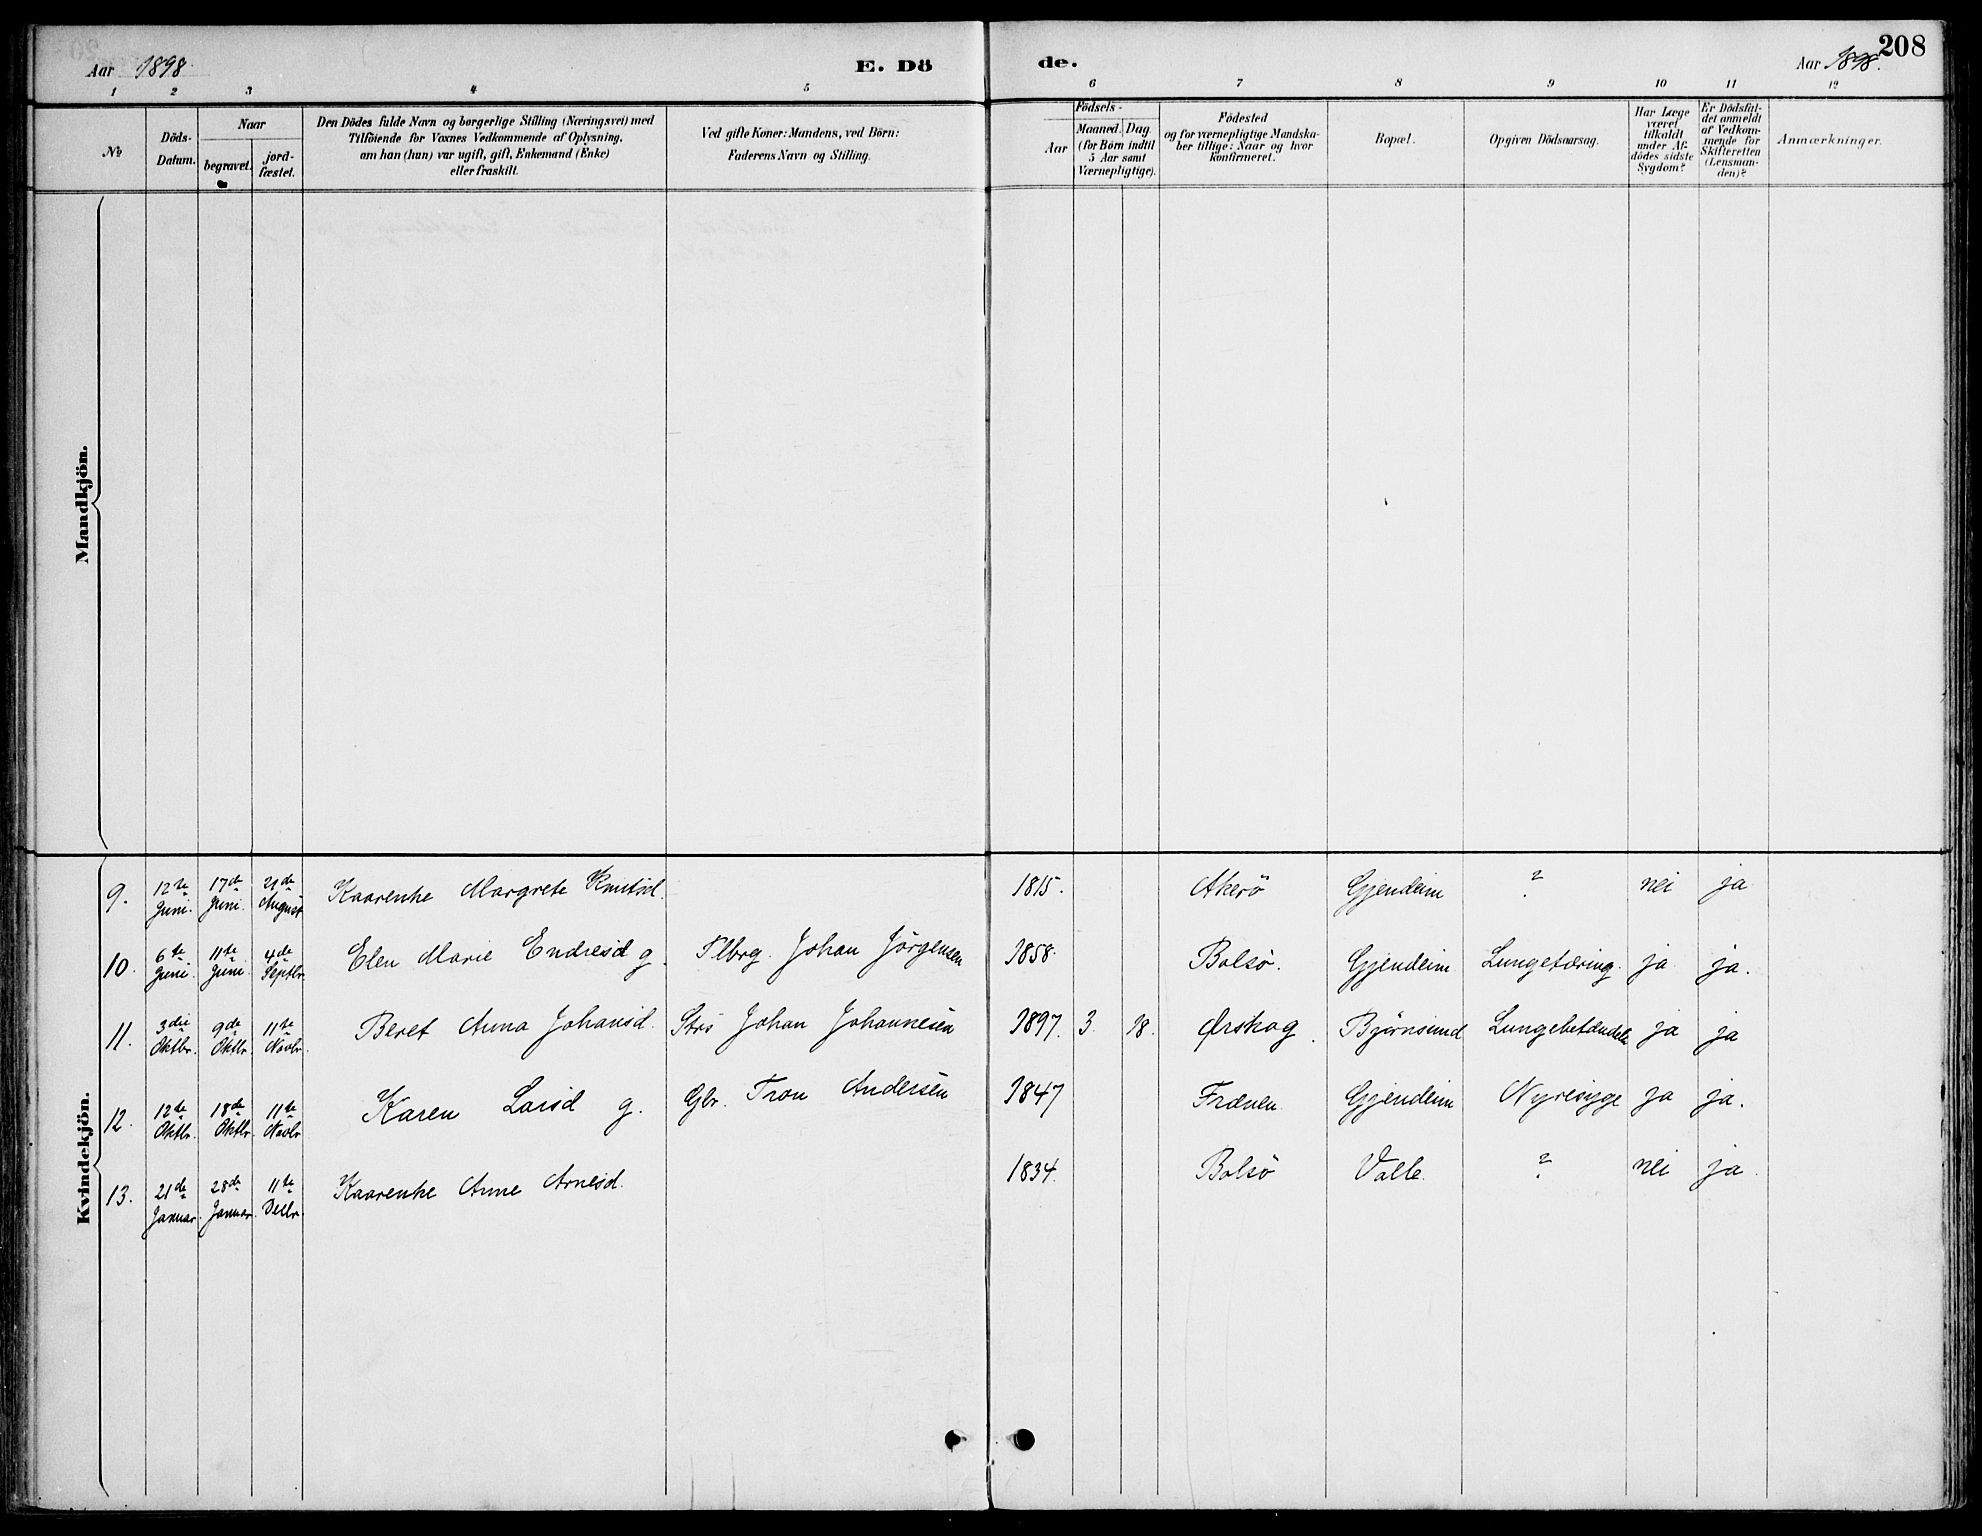 208
Aar 1898. E. Dö de. Aar 1898.
1 2 3 4 5 6 7 8 9 10 11 12
No
Döds-
Datum.
Naar
begravet.
jord-
fæstet.
Den Dödes fulde Navn og borgerlige Stilling (Næringsvei) med
Tilföiende for Voxnes Vedkommende af Oplysning,
om han (hun) var ugift, gift, Enkemand (Enke)
eller fraskilt.
Ved gifte Koner: Mandens, ved Börn:
Faderens Navn og Stilling.
Födsels-
Aar
Maaned. Dag
(for Börn indtil
5 Aar samt
Værnepligtige).
Födested
og for værnepligtige Mandska-
ber tillige: Naar og hvor
konfirmeret.
Bopæl.
Opgiven Dödsaarsag.
Har Læge
været
tilkaldt
under Af-
dödes sidste
Sygdom?
Er Dödsfal-
det anmeldt
af Vedkom-
mende for
Skifteretten
(Lensman-
den)?
Anmærkninger.
Mandkjön.
Kvindekjön.
9. 12te Juni. 17de Juni. 21de August Kaarenke Margrete Knutsd. 1815. Akerö Gjendeim ? nei ja
10. 6te Juni. 11te Juni. 4de Septbr. Elen Marie Endresd g. Flbrg. Johan Jörgensen 1858. Bolsö. Gjendeim Lungetæring. ja ja.
11. 3die Oktbr. 9de Oktbr. 11te Novbr. Beret Anna Johansd. Strs Johan Johannesen 1897. 3. 18. Ørskog. Bjørnsund Lungebetændelse ja ja
12. 12te Oktbr. 18de Oktbr. 11te Novbr. Karen Larsd g. Gbr. Tron Andersen 1847 Frænen Gjendeim Nyresyge ja ja.
13. 21de Januar. 28de Januar. 11te Decbr. Kaarenke Anne Arnesd. 1834. Bolsö Valle. ? nei ja